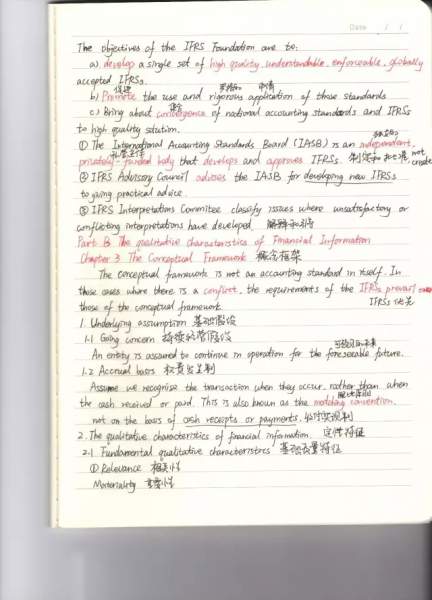 Date / /
The objectives of the IFRS Foundation are to:
a) develop a single set of high quality, understandable, enforceable, globally
accepted IFRSs.
促进 严格的 申请
b) Promote the use and rigorous application of those standards
c) Bring about convergence of national accounting standards and IFRSs
to high quality solution.
① The International Accounting Standards Board (IASB) is an independent,
privately-funded body that develops and approves IFRSs. 制定和批准, not
create
② IFRS Advisory Council advises the IASB for developing new IFRSs
to giving practical advice
③ IFRS Interpretations Committee classify issues where unsatisfactory or
conflicting interpretations have developed 解释和引导
Part B The qualitative characteristics of Financial Information
Chapter 3 The Conceptual Framework 概念框架
The conceptual framework is not an accounting standard in itself. In
those cases where there is a conflict, the requirements of the IFRSs prevail over
those of the conceptual framework IFRSs 优先
1. Underlying assumption 基础假设
1.1 Going concern 持续经营假设
可预见的未来
An entity is assured to continue in operation for the foreseeable future.
1.2 Accrual basis 权责发生制
Assume we recognise the transaction when they occur, rather than when
配比原则
the cash received or paid. This is also known as the matching convention.
not on the basis of cash receipts or payments. 收付实现制
2. The qualitative characteristics of financial information 定性特征
2.1 Fundamental qualitative characteristics 基础质量特征
① Relevance 相关性
Materiality 重要性